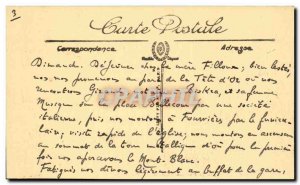 3
Carte Postale
Correspondance
Adresse
Dimanche. Déjeuner chez la mère Filloux; bien lestés,
nous nous promenons au parc de la Tête d'Or où nous
rencontrons et sa femme.
Musique sur la place Bellecour par une société
italienne, puis nous montons à Fourvières par le funicu-
laire, visite rapide de l'église; nous montons en ascenseur
au sommet de la tour métallique d'où pour la première
fois nous apercevons le Mont-Blanc.
Fatigués nous dînons légèrement au buffet de la gare.